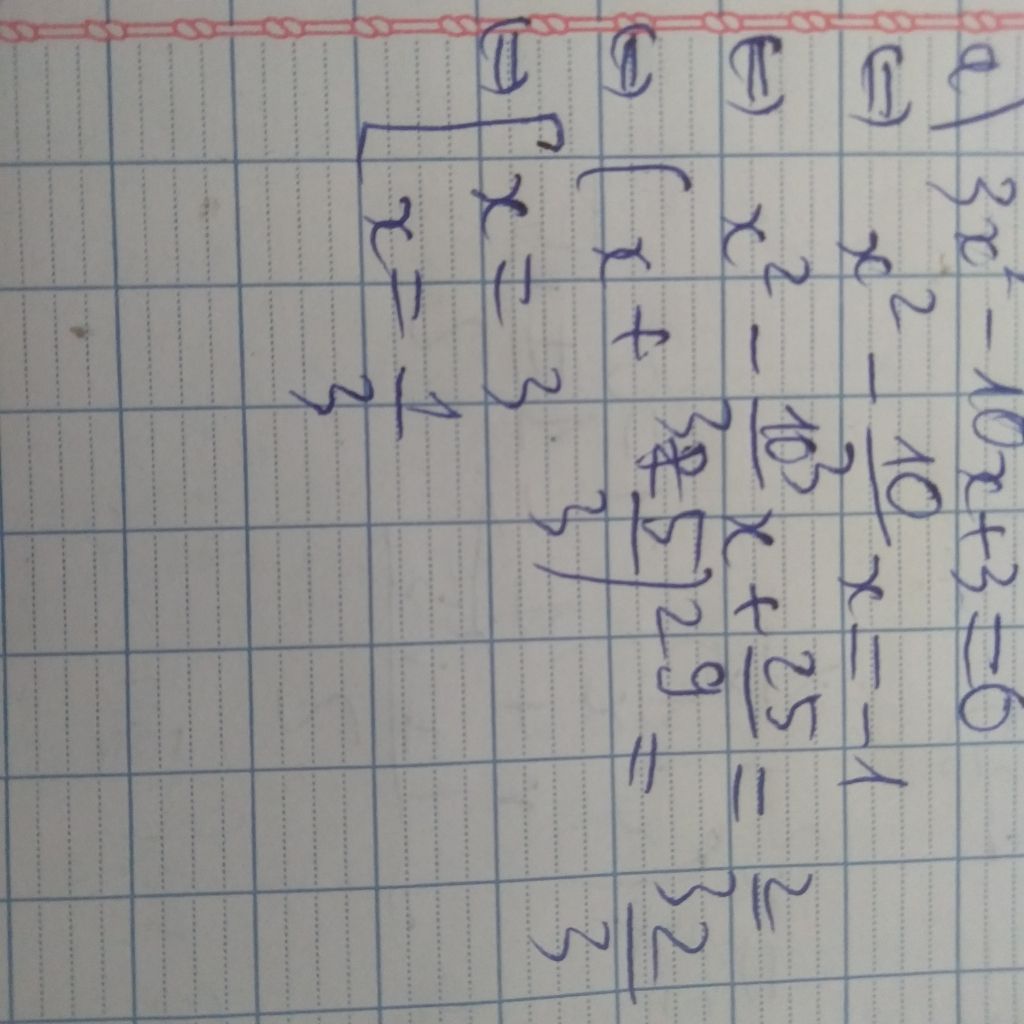 e) 3x² - 10x + 3 = 0
⇔ x² - 10/3 x = -1
⇔ x² - 10/3 x + 25/9 = 2/3
⇔ (x + 5/3)² = 2/3
⇔ [ x = 3
x = 1/3